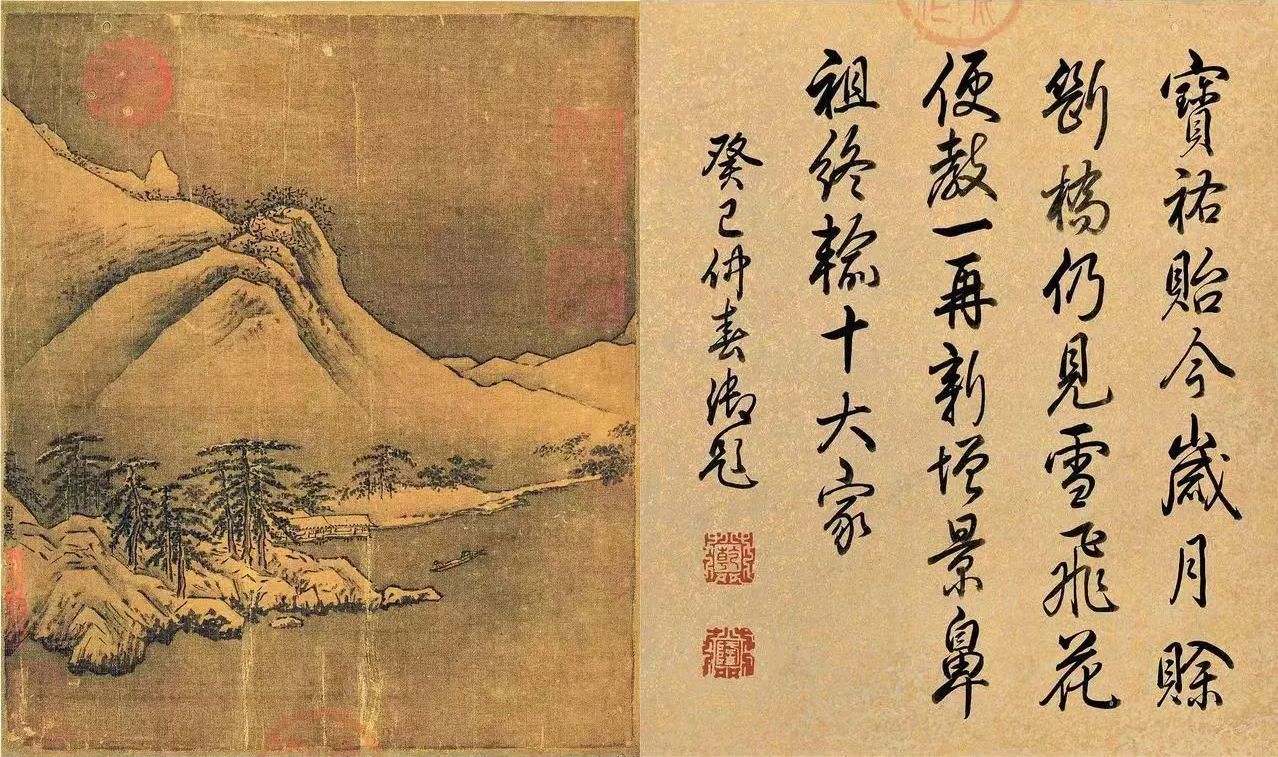 寶祐貽今歲月賒
斷橋仍見雪飛花
便教一再新增景鼻
祖終輸十大家
癸巳仲春御題
乾
隆